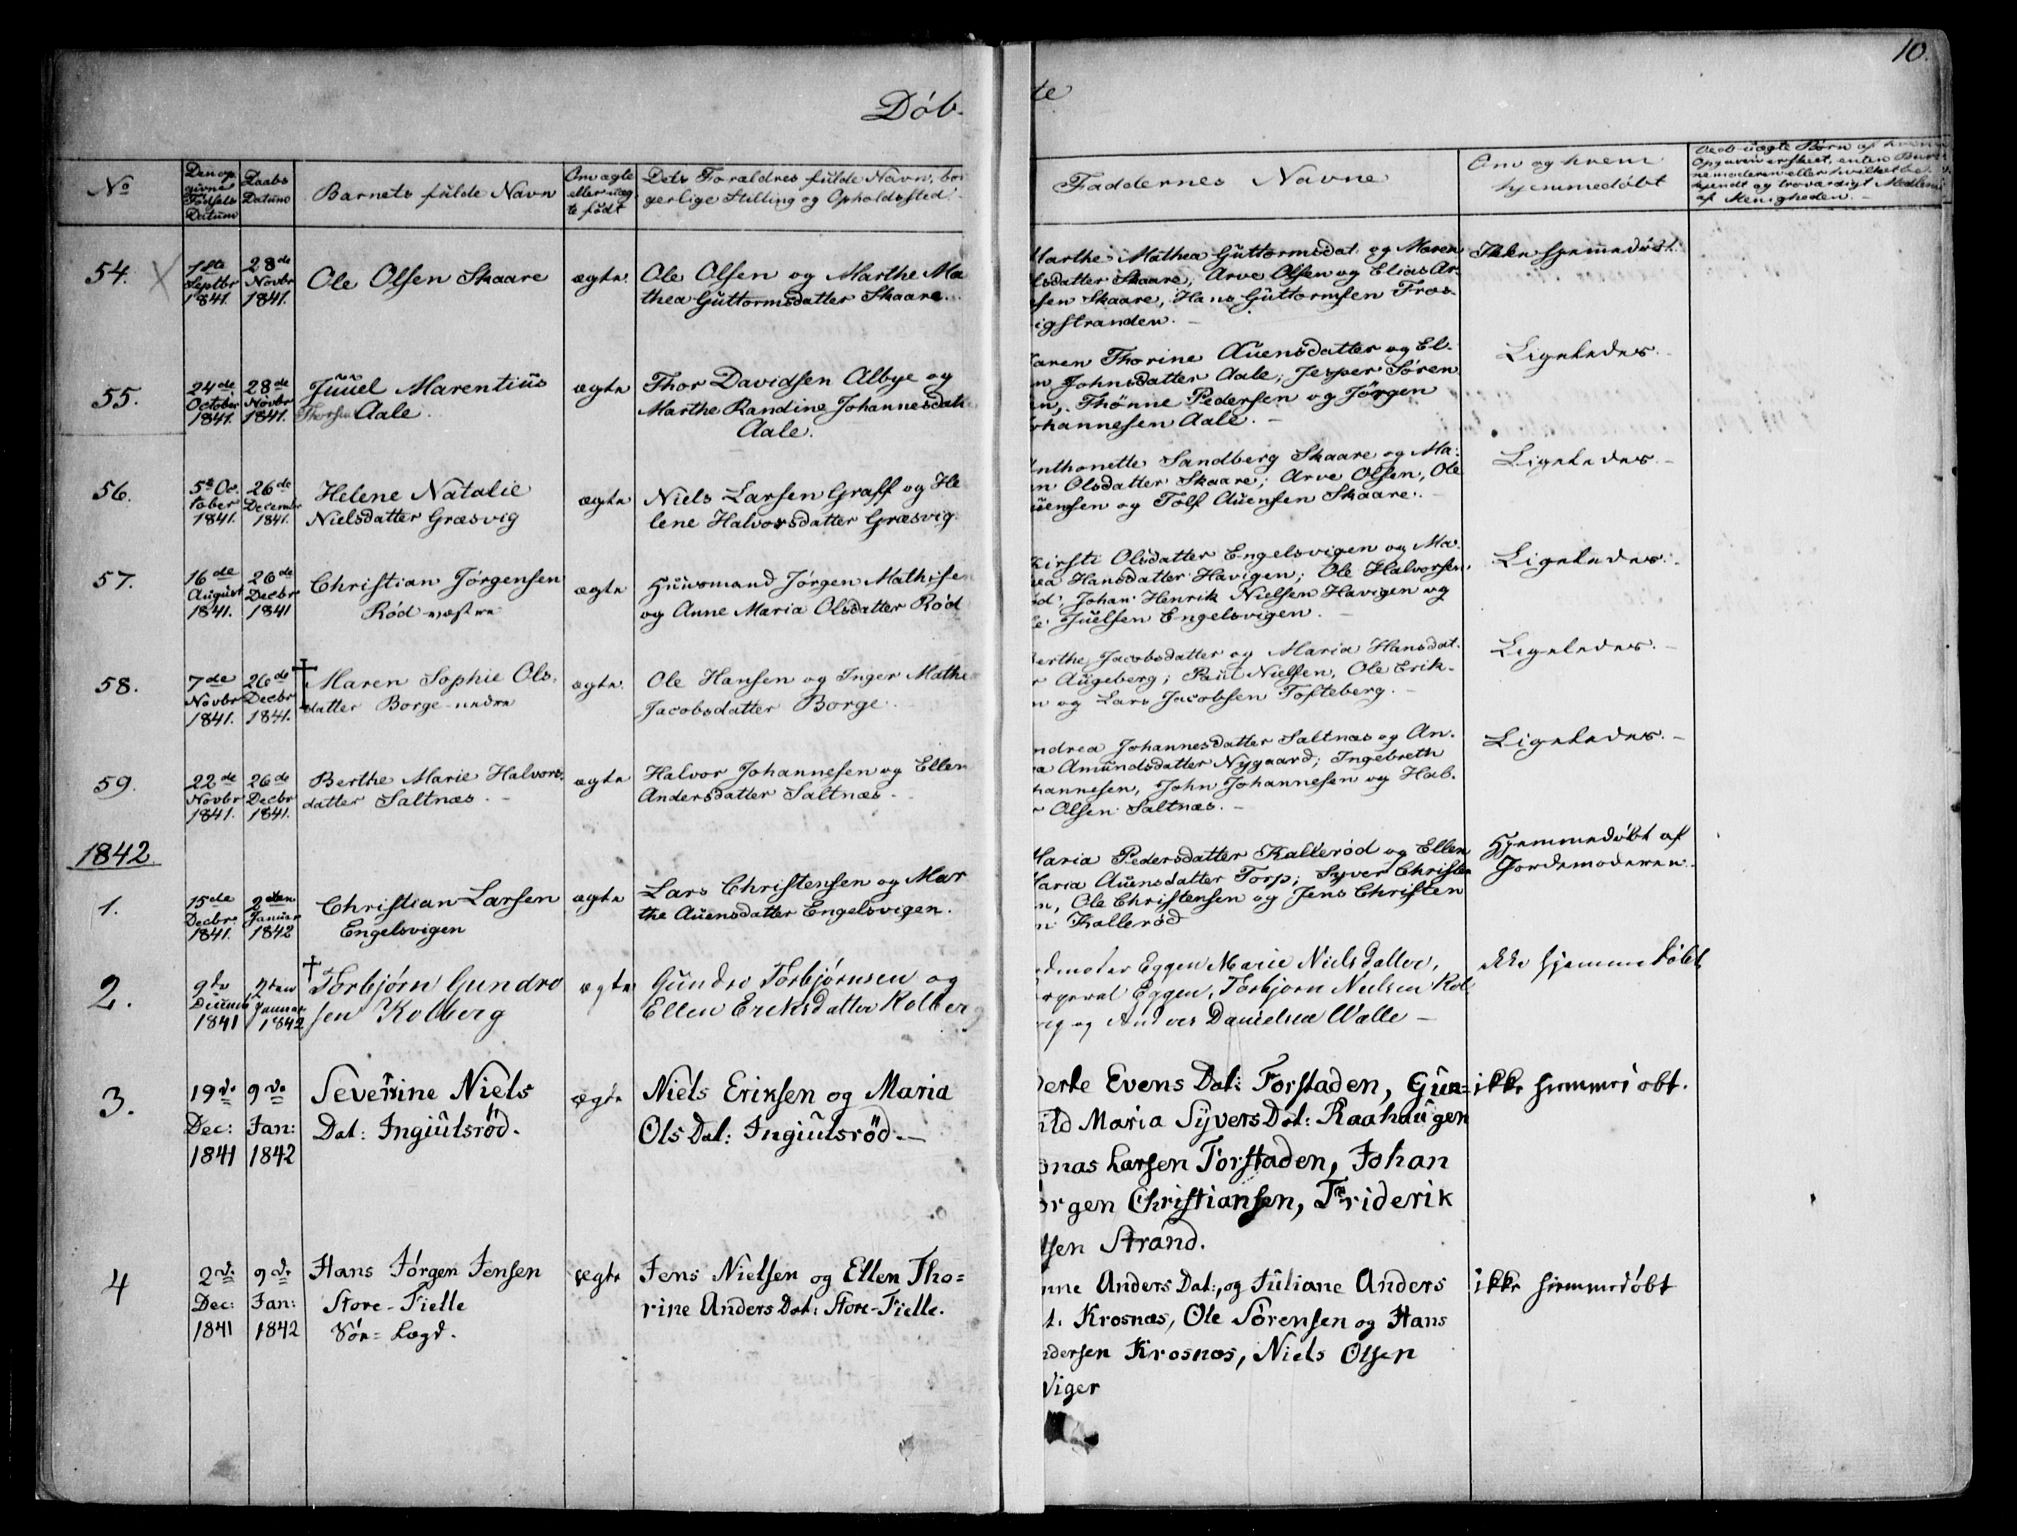 10.
Døb-
te
No
Den op
givne
Fødsels
Datum
Daabs
Datum
Barnets fulde Navn
Om ægte
eller uæg
te født
Dets Forældres fulde Navn, bor
gerlige Stilling og Opholdssted.
Faddernes Navne
Om og hvem
hjemmedøbt
Ved uægte Børn af hvem
Opgaven er skeet, enten Barne
moderen eller hvilket be-
kjendt og troværdigt Medlem
af Menigheden.
54.
1ste
Septbr
1841.
28de
Novbr
1841.
Ole Olsen Skaare
ægte
Ole Olsen og Marthe Ma
thea Guttormsdatter Skaare.
Marthe Mathea Guttormsdat. og Maren
lsdatter Skaare, Arve Olsen og Elias Ar-
sen Skaare, Hans Guttormsen Fros-
igstranden.
Ikke hjemmedøbt.
55.
24de
October
1841.
28de
Novbr
1841.
Juuel Marentius
Thorsen Aale.
ægte
Thor Davidsen Albye og
Marthe Randine Johannesdat
Aale.
aren Thorine Auensdatter og El-
n Johnsdatter Aale; Jesper Søren
en, Thønne Pedersen og Jørgen
ohannesen Aale.
Ligeledes.
56.
5te Oc
tober
1841.
26de
Decembr
1841.
Helene Natalie
Nielsdatter Græsvig
ægte
Niels Larsen Graff og He
lene Halvorsdatter Græsvig.
Anthonette Sandberg Skaare og Ma-
en Olsdatter Skaare; Arve Olsen, Ole
uensen og Tolf Auensen Skaare.
Ligeledes.
57.
16de
August
1841.
26de
Decbr
1841
Christian Jørgensen
Rød vestre
ægte
Huusmand Jørgen Mathisen
og Anne Maria Olsdatter Rød
Kirsti Olsdatter Engelsvigen og Ma-
ea Hansdatter Havigen; Ole Halvorsen
ød, Johan Henrik Nielsen Havigen og
le Juelsen Engelsvigen.
Ligeledes.
58.
7de
Novbr
1841.
26de
Decbr
1841.
† Maren Sophie Ols-
datter Borge nedre
ægte
Ole Hansen og Inger Mathea
Jacobsdatter Borge.
Berthe Jacobsdatter og Maria Hansdat-
r Augeberg; Paul Nielsen, Ole Erik-
n og Lars Jacobsen Tofteberg.
Ligeledes.
59.
22de
Novbr
1841.
26de
Decbr
1841.
Berthe Marie Halvors-
datter Saltnæs.
ægte
Halvor Johannesen og Ellen
Andersdatter Saltnæs.
ndrea Johannesdatter Saltnæs og An-
a Amundsdatter Nygaard; Ingebreth
hannesen, John Johannesen og Hal-
r Olsen Saltnæs.
Ligeledes.
1842
1.
15de
Decbr
1841.
2den
Januar
1842
Christian Larsen
Engelsvigen
ægte
Lars Christensen og Mar
the Auensdatter Engelsvigen.
Maria Pedersdatter Kallerød og Ellen
Maria Auensdatter Torp; Syver Christen
n, Ole Christensen og Jens Christen
n Kallerød
Hjemmedøbt af
Jordemoderen.
2.
9de
Decemb
1841
2den
Januar
1842
† Torbjørn Gundro
sen Kolberg
ægte
Gundro Torbjørnsen og
Ellen Eriksdatter Kolberg
rdmoder Eggen, Marie Nielsdatter,
Eggen, Torbjorn Nielsen Kol-
rg og Anders Danielsen Walle
ikke hjemmedøbt
3.
19de
Dec:
1841
9de
Jan:
1842
Severine Niels
Dat: Ingiulsrød.
ægte
Niels Eriksen og Maria
Ols Dat: Ingiulsrød.
Berte Evens Dat: Torstaden, Gun=
ild Maria Syvers Dat: Raahaugen
onas Larsen Torstaden, Johan
ørgen Christiansen, Friderik
lsen Strand.
ikke hiemmedøbt.
4
2de
Dec:
1841
9de
Jan:
1842
Hans Jørgen Jensen
Store-Fielle
Sør=Lægd.
ægte
Jens Nielsen og Ellen Tho=
rine Anders Dat: Store-Fielle.
nne Anders Dat:, og Juliane Anders
t. Krosnæs, Ole Sørensen og Hans
ndersen Krosnæs, Niels Olsen
Viger
ikke hiemmedøbt